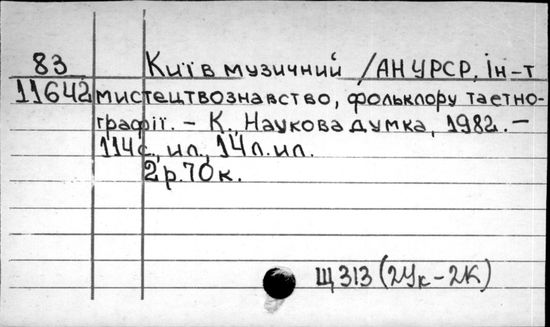 83 Київ музичний /АН УРСР, Ін-т
11642 мистецтвознавство, фольклору та етно-
графії. – К., Наукова думка, 1982. –
114с., ил., 14л. ил.
2р.70к.
Щ313(2Ук-2К)